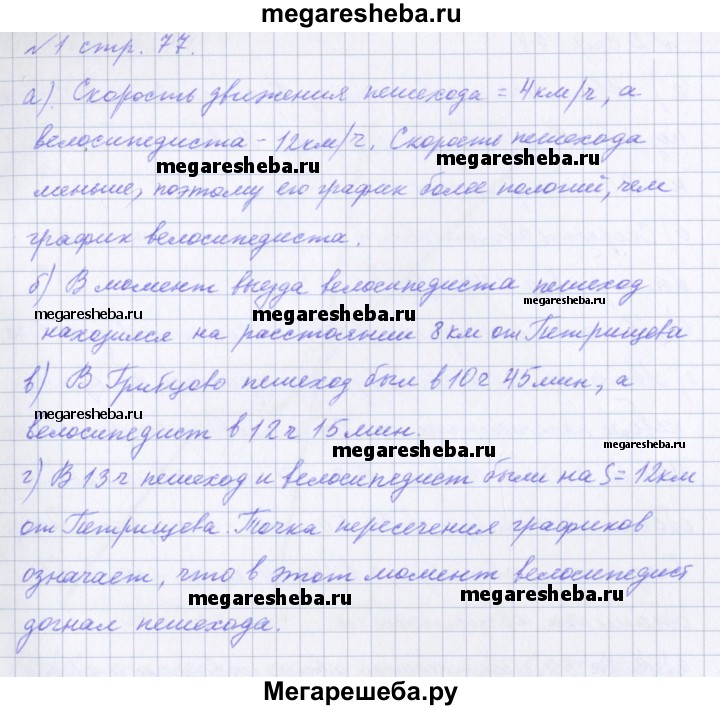 megaresheba.ru
№1 стр. 77.
а). Скорость движения пешехода = 4км/ч, а
велосипедиста - 12км/ч. Скорость пешехода
megaresheba.ru megaresheba.ru
меньше, поэтому его график более пологий, чем
график велосипедиста.
б) В момент выезда велосипедиста пешеход
megaresheba.ru megaresheba.ru
находился на расстоянии 8км от Петрищова
в) В Грибцово пешеход был в 10ч 45мин, а
megaresheba.ru
велосипедист в 12ч 15мин.
megaresheba.ru megaresheba.ru
г) В 13ч пешеход и велосипедист были на S=12км
от Петрищова. Точка пересечения графиков
означает, что в этот момент велосипедист
megaresheba.ru megaresheba.ru
догнал пешехода.
Мегарешеба.ру